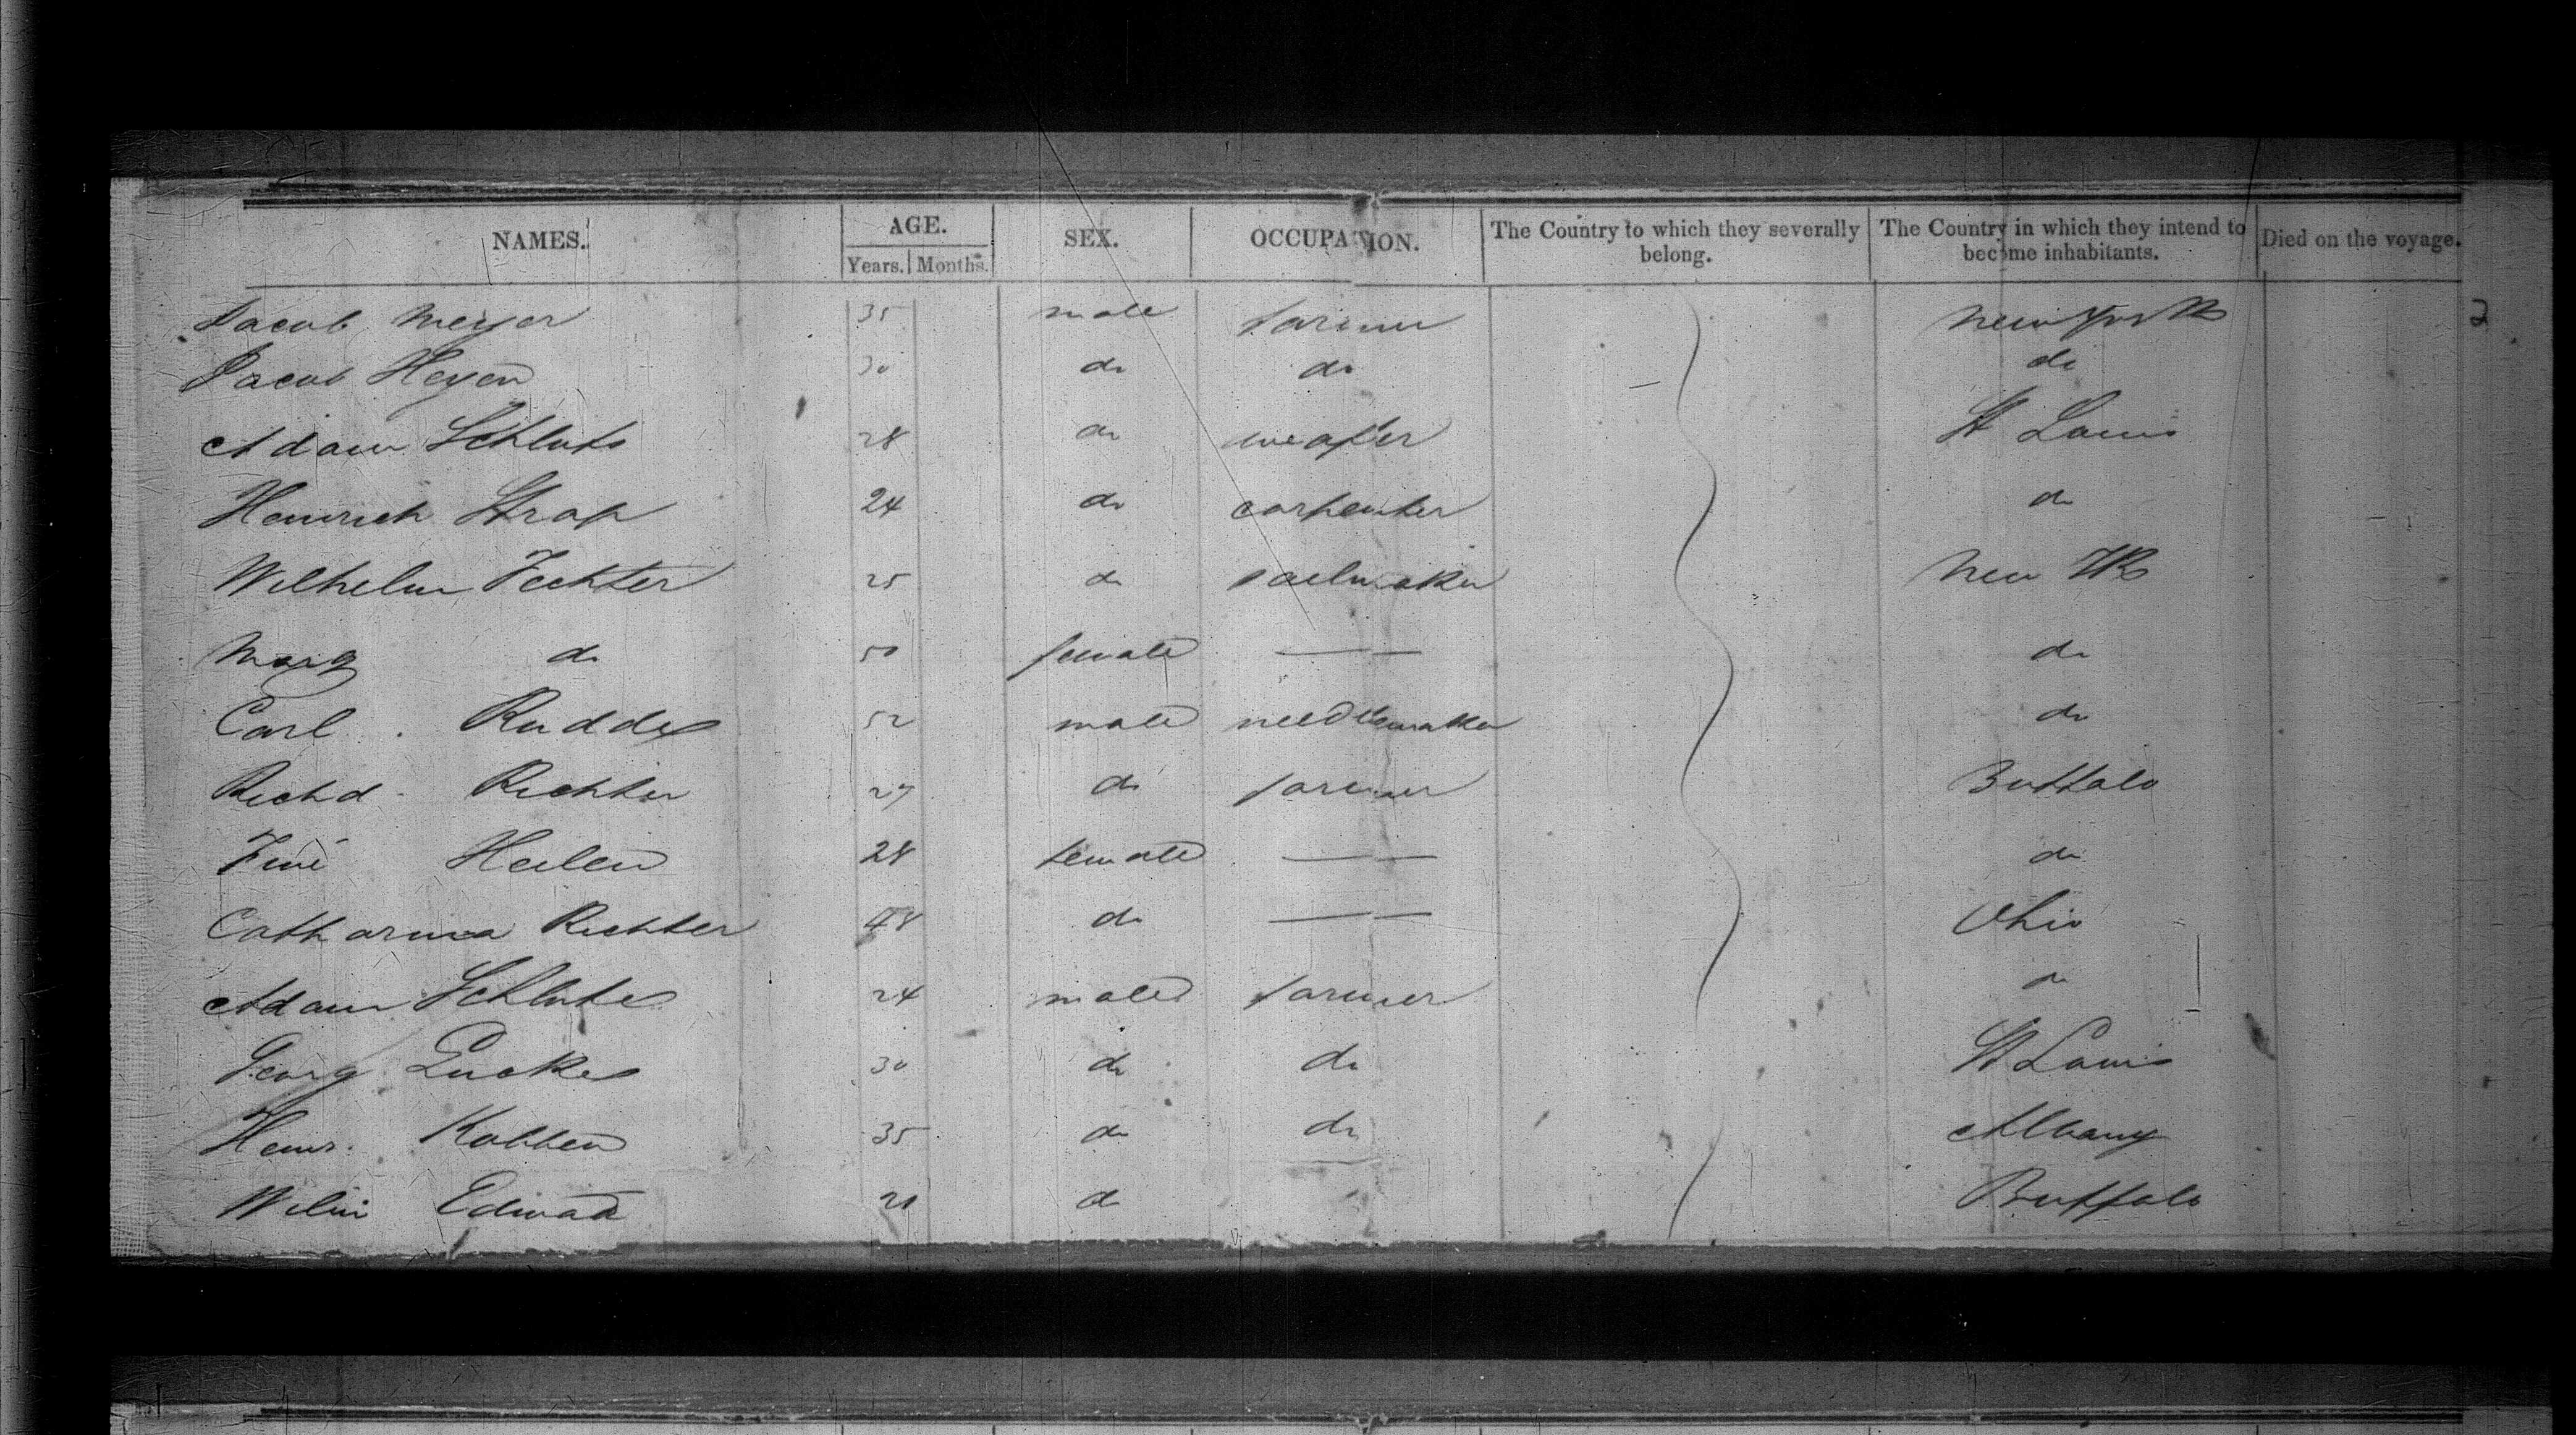 NAMES. AGE. SEX. OCCUPATION. The Country to which they severally belong. The Country in which they intend to become inhabitants. Died on the voyage.
Years. Months.
Jacob Meyer 35 male farmer New York 2
Jacob Heyen 30 do do do
Adam Schluts 28 do weafer St Louis
Heinrich Strap 24 do carpenter do
Wilhelm Fechter 25 do sailmaker New YK
Marg do 50 female — — do
Carl Rudde 52 male needlemaker do
Richd Richter 27 do farmer Buffalo
Heilen 28 female — — do
Catharina Richter 48 do — — Ohio
Adam Schlute 24 male farmer do
Georg Lucke 30 do do St Louis
Heinr. Kobben 35 do do Albany
Wilm Edward do Buffalo